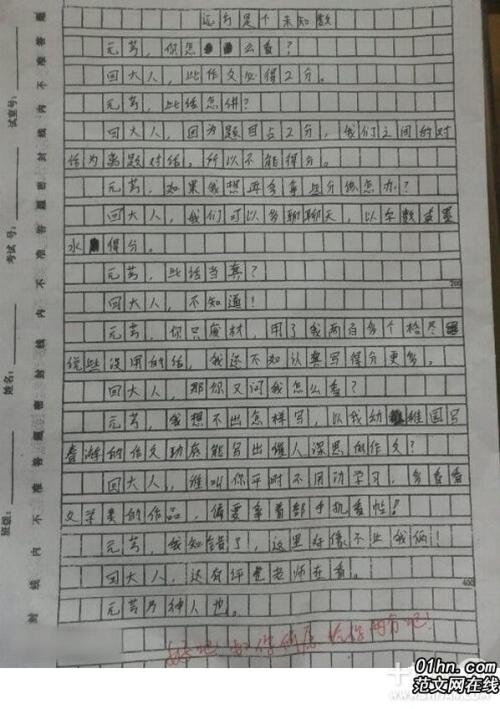 远方是个未知数
元芳，你怎么看？
回大人，此作文必得2分。
元芳，此话怎讲？
回大人，因为题目占2分，我们之间的对
话为离题对话，所以不能得分。
元芳，如果我想再多拿些分你怎办？
回大人，我们可以多聊聊天，以字数
水得分。
元芳，此话当真？
200
回大人，不知道！
元芳，你只废材，用了我两百多个格尽
说些没用的话，我还不如认真写得分更多。
回大人，那你又问我怎么看？
元芳，我想不出怎样写，以我幼稚园写
的作文功底能写出催人深思的作文？
回大人，谁叫你平时不用功学习，多看看
文学类的作品，偏要拿着部手机看帖！
元芳，我知错了，这里好像不止我俩！
回大人，还有评卷老师在看。
400
元芳乃神人也。
好吧 给你两分吧！
试室号：
考试号：
姓名：
班级：
密封线内不准答题
01hn.com
范文网在线